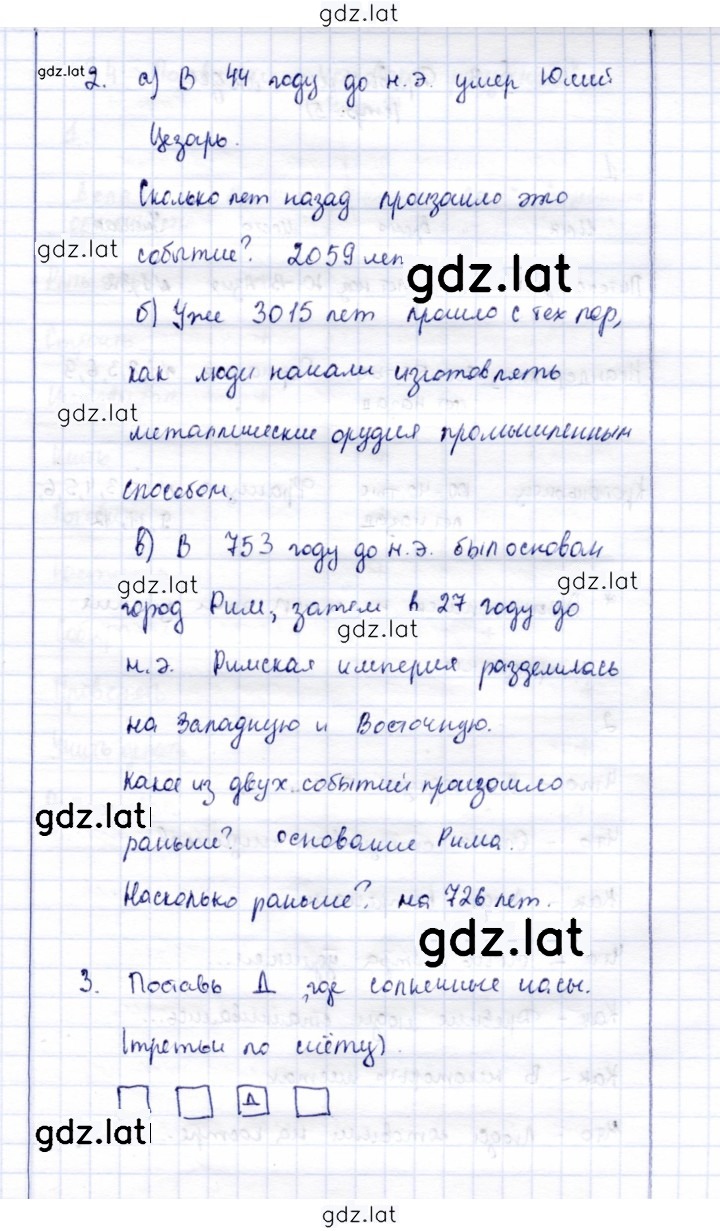 gdz.lat
gdz.lat
2. а) В 44 году до н.э. умер Юлий
Цезарь.
Сколько лет назад произошло это
gdz.lat
событие? 2059 лет
gdz.lat
б) Уже 3015 лет прошло с тех пор,
как люди начали изготовлять
gdz.lat
металлические орудия промышленным
способом.
в) В 753 году до н.э. был основан
gdz.lat
gdz.lat
город Рим, затем в 27 году до
gdz.lat
н.э. Римская империя разделилась
на Западную и Восточную.
Какое из двух событий произошло
gdz.lat
раньше? основание Рима.
Насколько раньше? на 726 лет.
gdz.lat
3. Поставь Д, где солнечные часы.
(третьи по счёту).
Д
gdz.lat
gdz.lat